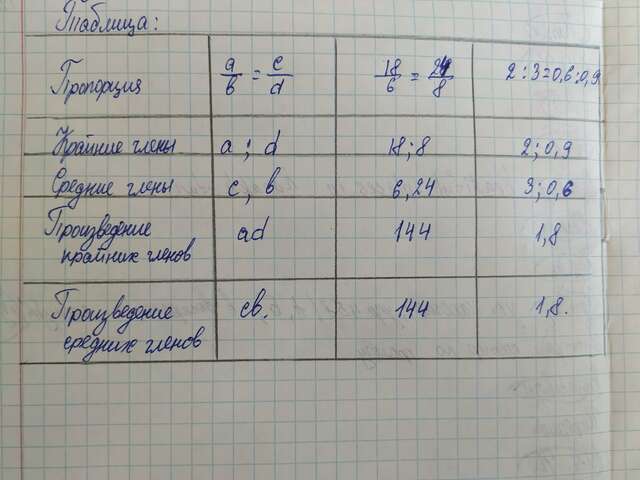 Таблица:
Пропорция a/b = c/d 18/6 = 24/8 2:3=0,6:0,9
Крайние члены a; d 18; 8 2; 0,9
Средние члены c, b 6, 24 3; 0,6
Произведение
крайних членов ad 144 1,8
Произведение
средних членов cb. 144 1,8.